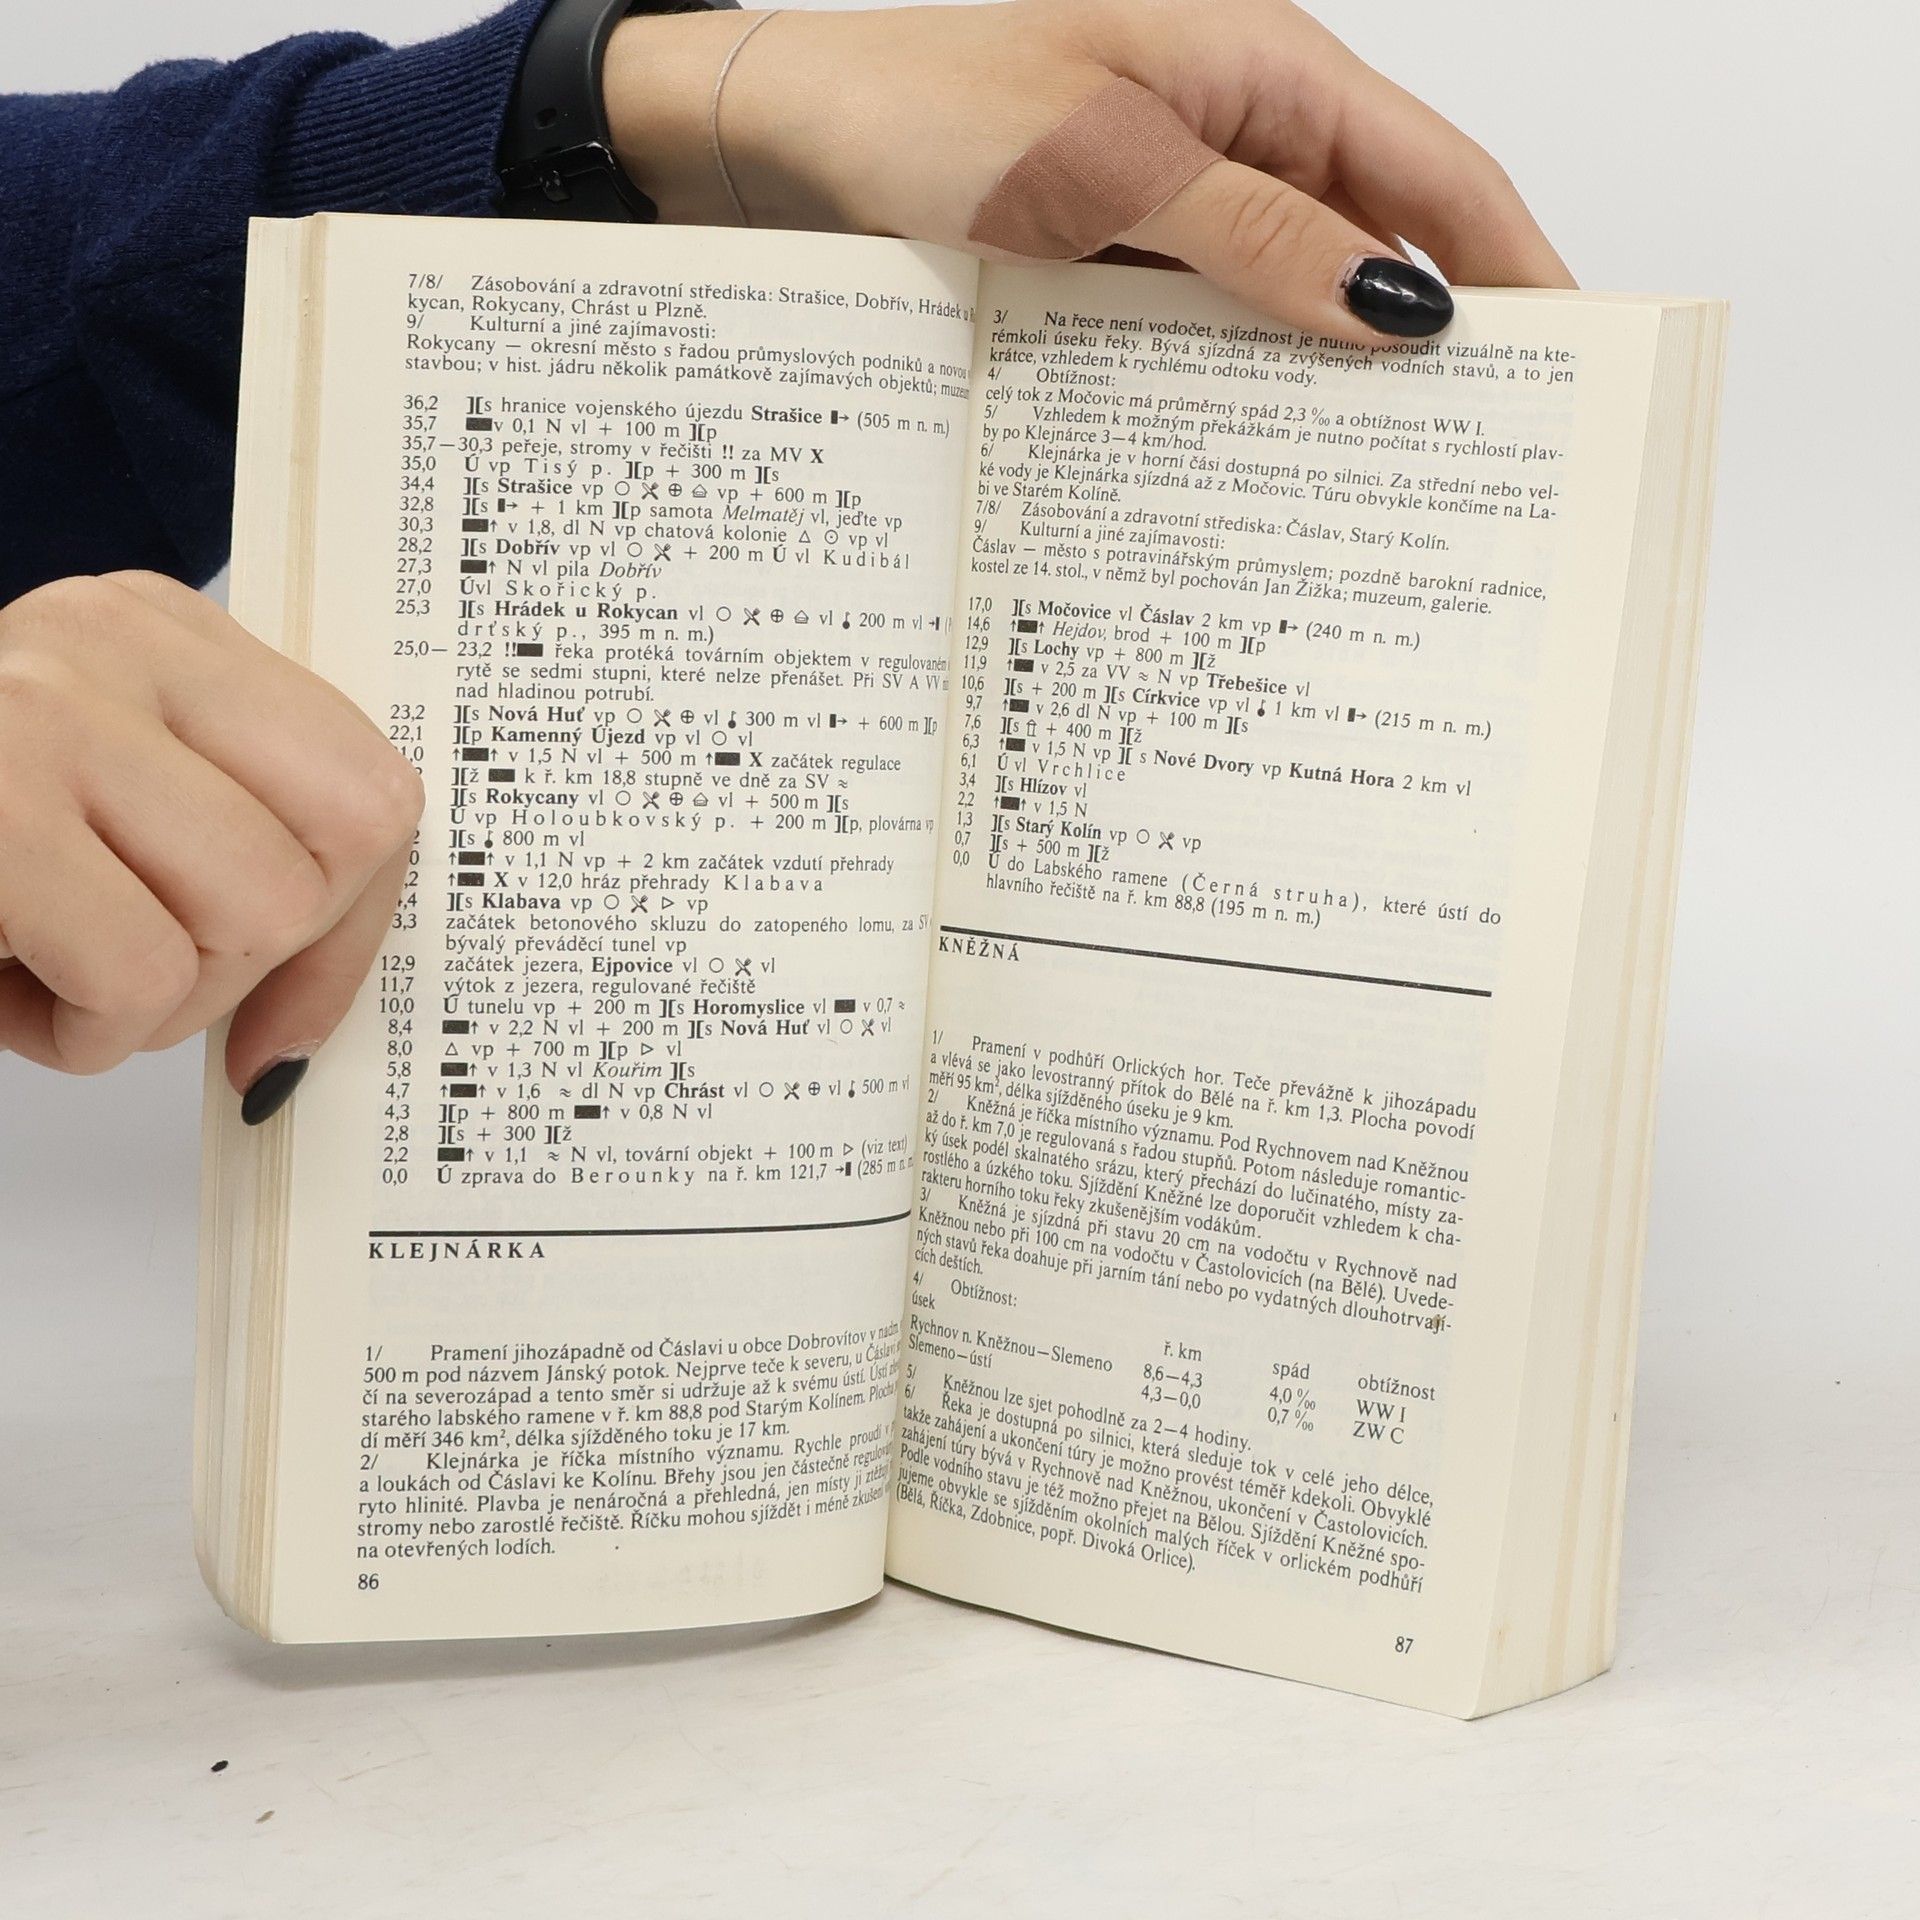 7/8/ Zásobování a zdravotní střediska: Strašice, Dobřív, Hrádek u
kycan, Rokycany, Chrást u Plzně.
9/ Kulturní a jiné zajímavosti:
Rokycany — okresní město s řadou průmyslových podniků a novou
stavbou; v hist. jádru několik památkově zajímavých objektů;
36,2 ][s hranice vojenského újezdu Strašice (505 m n. m.)
35,7 v 0,1 N vl + 100 m ][p
35,7—30,3 peřeje, stromy v řečišti !! za MV X
35,0 Ú vp Tisý p. ][p + 300 m ][s
34,4 ][s Strašice vp vp + 600 m ][p
32,8 ][s + 1 km ][p samota Melmatěj vl, jeďte vp
30,3 ↑ v 1,8, dl N vp chatová kolonie △ ⊙ vp vl
28,2 ][s Dobřív vp vl + 200 m Ú vl Kudibál
27,3 ↑ N vl pila Dobřív
27,0 Úvl Skořický p.
25,3 ][s Hrádek u Rokycan vl vl 200 m vl
drťský p., 395 m n. m.)
25,0— 23,2 !! řeka protéká továrním objektem v regulovaném
rytě se sedmi stupni, které nelze přenášet. Při SV A VV
nad hladinou potrubí.
23,2 ][s Nová Huť vp vl 300 m vl + 600 m ][p
22,1 ][p Kamenný Újezd vp vl vl
1,0 ↑ ↑ v 1,5 N vl + 500 m ↑ X začátek regulace
][ž k ř. km 18,8 stupně ve dně za SV ≈
][s Rokycany vl vl + 500 m ][s
Ú vp Holoubkovský p. + 200 m ][p, plovárna vp
][s 800 m vl
↑ ↑ v 1,1 N vp + 2 km začátek vzdutí přehrady
,2 ↑ X v 12,0 hráz přehrady Klabava
,4 ][s Klabava vp ▷ vp
3,3 začátek betonového skluzu do zatopeného lomu, za SV
bývalý převáděcí tunel vp
12,9 začátek jezera, Ejpovice vl vl
11,7 výtok z jezera, regulované řečiště
10,0 Ú tunelu vp + 200 m ][s Horomyslice vl v 0,7 ≈
8,4 ↑ v 2,2 N vl + 200 m ][s Nová Huť vl vl
8,0 △ vp + 700 m ][p ▷ vl
5,8 ↑ v 1,3 N vl Kouřim ][s
4,7 ↑ ↑ v 1,6 ≈ dl N vp Chrást vl vl 500 m vl
4,3 ][p + 800 m ↑ v 0,8 N vl
2,8 ][s + 300 ][ž
2,2 ↑ v 1,1 ≈ N vl, tovární objekt + 100 m ▷ (viz text)
0,0 Ú zprava do Berounky na ř. km 121,7 (285 m n.
KLEJNÁRKA
1/ Pramení jihozápadně od Čáslavi u obce Dobrovítov v
500 m pod názvem Jánský potok. Nejprve teče k severu, u Čáslavi
čí na severozápad a tento směr si udržuje až k svému ústí. Ústí
starého labského ramene v ř. km 88,8 pod Starým Kolínem.
dí měří 346 km², délka sjížděného toku je 17 km.
2/ Klejnárka je říčka místního významu. Rychle proudí
a loukách od Čáslavi ke Kolínu. Břehy jsou jen částečně
ryto hlinité. Plavba je nenáročná a přehledná, jen místy ji
stromy nebo zarostlé řečiště. Říčku mohou sjíždět i méně zkušení
na otevřených lodích.
86
3/ Na řece není vodočet, sjízdnost je nutno posoudit vizuálně na kte-
rémkoli úseku řeky. Bývá sjízdná za zvýšených vodních stavů, a to jen
krátce, vzhledem k rychlému odtoku vody.
4/ Obtížnost:
celý tok z Močovic má průměrný spád 2,3 ‰ a obtížnost WW I.
5/ Vzhledem k možným překážkám je nutno počítat s rychlostí plav-
by po Klejnárce 3—4 km/hod.
6/ Klejnárka je v horní části dostupná po silnici. Za střední nebo vel-
ké vody je Klejnárka sjízdná až z Močovic. Túru obvykle končíme na La-
bi ve Starém Kolíně.
7/8/ Zásobování a zdravotní střediska: Čáslav, Starý Kolín.
9/ Kulturní a jiné zajímavosti:
Čáslav — město s potravinářským průmyslem; pozdně barokní radnice,
kostel ze 14. stol., v němž byl pochován Jan Žižka; muzeum, galerie.
17,0 ][s Močovice vl Čáslav 2 km vp (240 m n. m.)
14,6 ↑ ↑ Hejdov, brod + 100 m ][p
12,9 ][s Lochy vp + 800 m ][ž
11,9 ↑ v 2,5 za VV ≈ N vp Třebešice vl
10,6 ][s + 200 m ][s Církvice vp vl 1 km vl (215 m n. m.)
9,7 ↑ v 2,6 dl N vp + 100 m ][s
7,6 ][s + 400 m ][ž
6,3 ↑ v 1,5 N vp ][ s Nové Dvory vp Kutná Hora 2 km vl
6,1 Ú vl Vrchlice
3,4 ][s Hlízov vl
2,2 ↑ ↑ v 1,5 N
1,3 ][s Starý Kolín vp vp
0,7 ][s + 500 m ][ž
0,0 Ú do Labského ramene (Černá struha), které ústí do
hlavního řečiště na ř. km 88,8 (195 m n. m.)
KNĚŽNÁ
1/ Pramení v podhůří Orlických hor. Teče převážně k jihozápadu
a vlévá se jako levostranný přítok do Bělé na ř. km 1,3. Plocha povodí
měří 95 km², délka sjížděného úseku je 9 km.
2/ Kněžná je říčka místního významu. Pod Rychnovem nad Kněžnou
až do ř. km 7,0 je regulovaná s řadou stupňů. Potom následuje romantic-
ký úsek podél skalnatého srázu, který přechází do lučinatého, místy za-
rostlého a úzkého toku. Sjíždění Kněžné lze doporučit vzhledem k cha-
rakteru horního toku řeky zkušenějším vodákům.
3/ Kněžná je sjízdná při stavu 20 cm na vodočtu v Rychnově nad
Kněžnou nebo při 100 cm na vodočtu v Častolovicích (na Bělé). Uvede-
ných stavů řeka doahuje při jarním tání nebo po vydatných dlouhotrvají-
cích deštích.
4/ Obtížnost:
úsek ř. km spád obtížnost
Rychnov n. Kněžnou—Slemeno 8,6—4,3 4,0 ‰ WW I
Slemeno—ústí 4,3—0,0 0,7 ‰ ZW C
5/ Kněžnou lze sjet pohodlně za 2—4 hodiny.
6/ Řeka je dostupná po silnici, která sleduje tok v celé jeho délce,
takže zahájení a ukončení túry je možno provést téměř kdekoli. Obvyklé
zahájení túry bývá v Rychnově nad Kněžnou, ukončení v Častolovicích.
Podle vodního stavu je též možno přejet na Bělou. Sjíždění Kněžné spo-
jujeme obvykle se sjížděním okolních malých říček v orlickém podhůří
(Bělá, Říčka, Zdobnice, popř. Divoká Orlice).
87